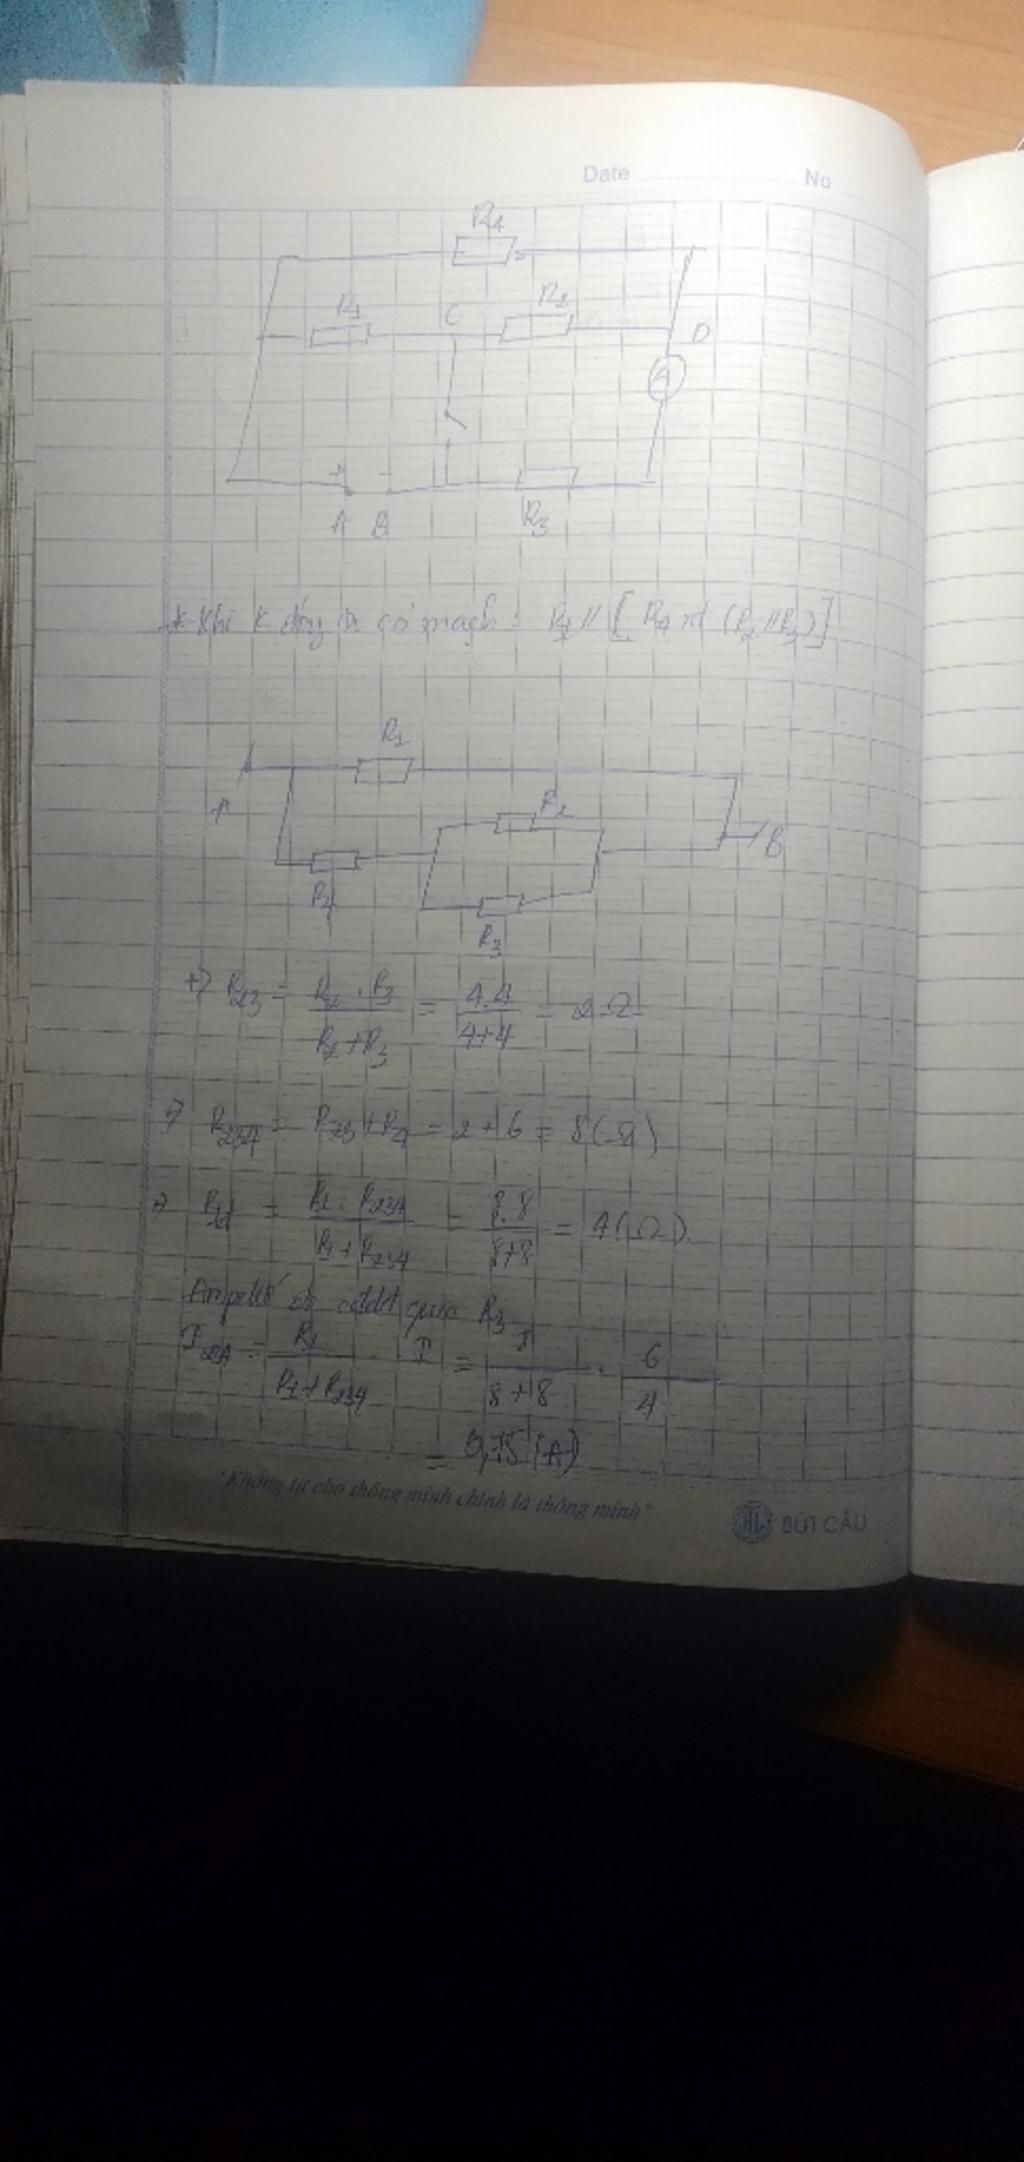 Date No
R4
R1 C R2
D
A
+ -
A B R3
* Khi K đóng ta có mạch: R1 // [R4 nt (R2 // R3)]
R1
A R2
B
R4
R3
+) R23 = R2 . R3 / R2 + R3 = 4.4 / 4+4 = 2 Ω
=) R234 = R23 + R4 = 2 + 6 = 8 (Ω)
=) Rtđ = R1 . R234 / R1 + R234 = 8.8 / 8+8 = 4 (Ω).
qua R3
R1 / R1 + R234 . I = 8 + 8 . 6 / 4
= 0,75 (A)
"Không tự cho thông minh chính là thông minh"
BÚT CẦU